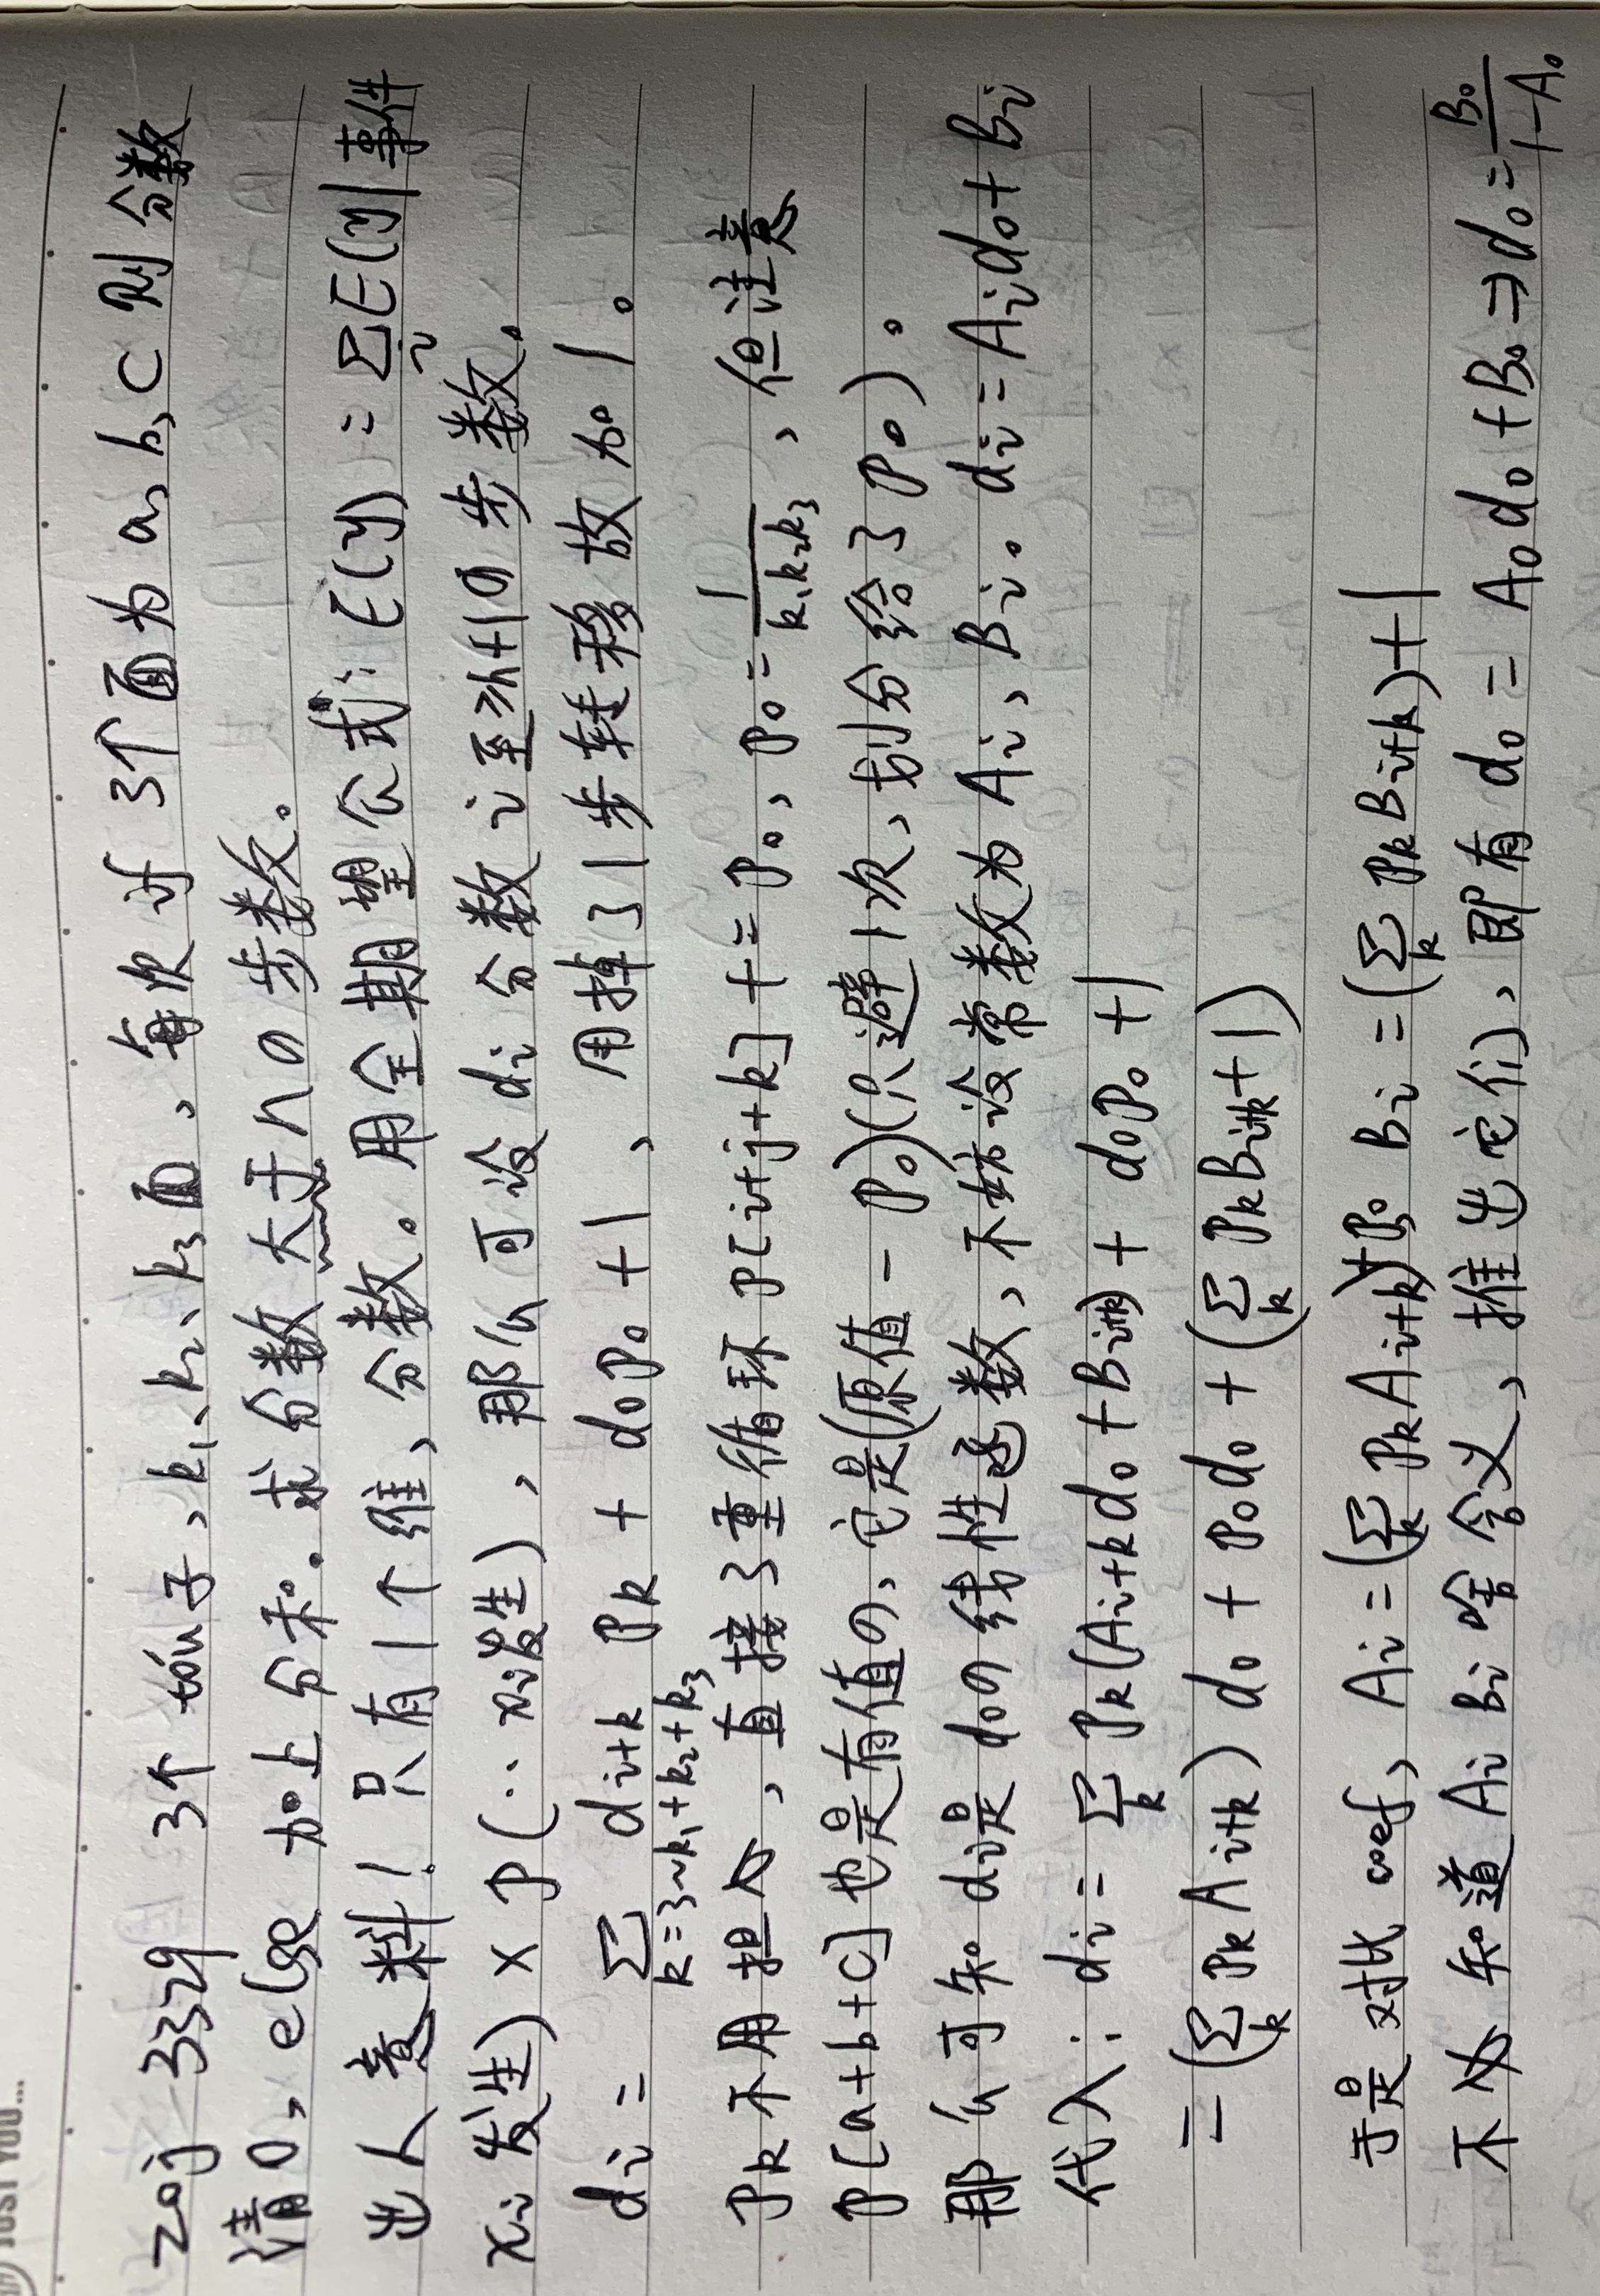 JUST YOU...
zoj 3329 3个 tóu子，k₁、k₂、k₃面，每次 if 3个面为 a, b, c 则分数
清0，else 加上分和。求分数大于nの步数。
出人意料！只有1个维，分数。用全期望公式：E(y) = ∑_i E(y|事件
x_i 发生) × P(‥ x_i发生)，那么可设 d_i 分数 i 至≥n+1の步数。
d_i = ∑_{k=3~k₁+k₂+k₃} d_{i+k} P_k + d₀P₀ + 1，用掉了1步转移故加1。
P_k 不用担心，直接3重循环 P[i+j+k] += P₀，P₀ = 1/(k₁k₂k₃)，但注意
P[a+b+c] 也是有值の，它是(原值 - P₀)(只避1次，划分给了P₀)。
那么可知 d_i是 d₀の线性函数，不妨设常数为 A_i，B_i。d_i = A_i d₀ + B_i
代入：d_i = ∑_k P_k(A_{i+k} d₀ + B_{i+k}) + d₀P₀ + 1
= (∑_k P_k A_{i+k}) d₀ + P₀d₀ + (∑_k P_k B_{i+k} + 1)
于是对比 coef，A_i = (∑_k P_k A_{i+k}) + P₀ B_i = (∑_k P_k B_{i+k}) + 1
不必知道 A_i B_i 啥含义，推出它们，即有 d₀ = A₀d₀ + B₀ ⇒ d₀ = B₀/(1-A₀)